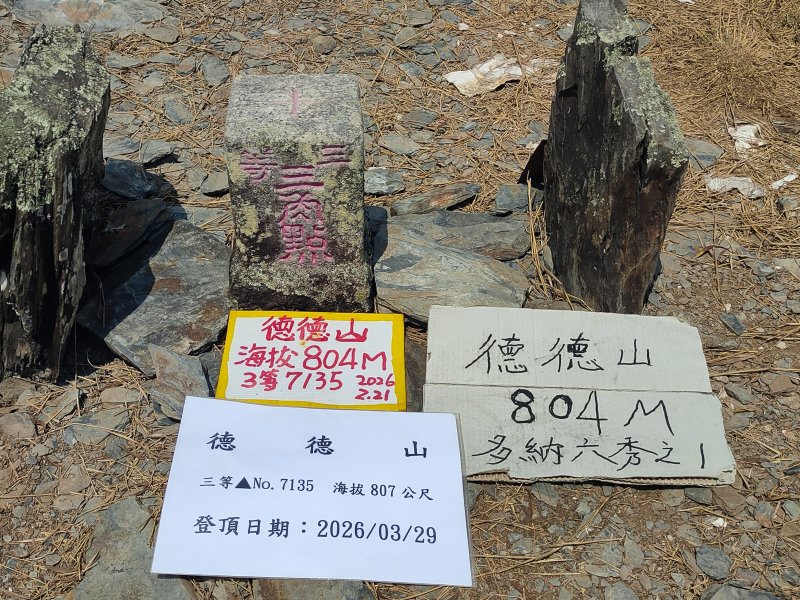 三等
三角點
德德山
海拔804M
3等7135 2026
2.21
德德山
804M
多納六秀之1
德 德 山
三等▲No.7135 海拔807公尺
登頂日期：2026/03/29